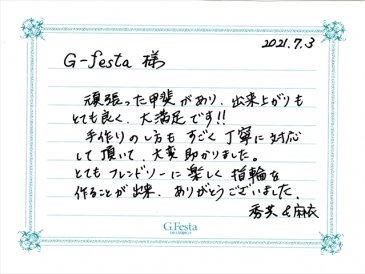 2021.7.3
G-festa 様
頑張った甲斐があり、出来上がりも
とても良く、大満足です!!
手作りのし方もすごく丁寧に対応
して頂いて、大変助かりました。
とてもフレンドリーに楽しく指輪を
作ることが出来、ありがとうございました。
秀美 & 麻衣
G.Festa